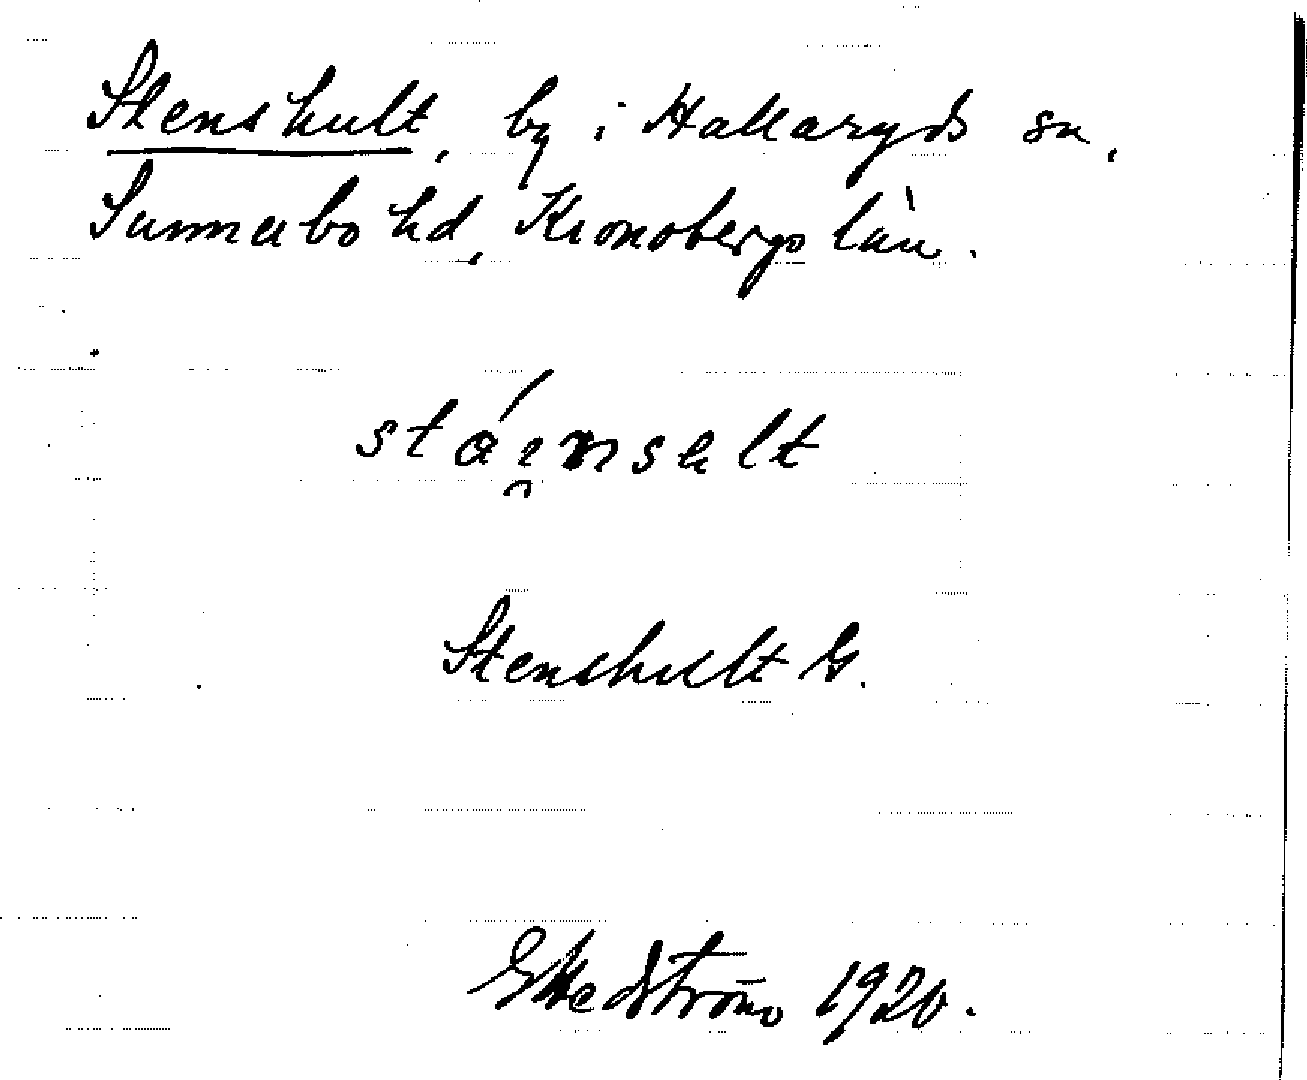 Stenshult, by i Hallaryds sn,
Sunnerbo hd, Kronobergs län.
stáe̯nsalt
Stenshult G.
G Hedström 1920.